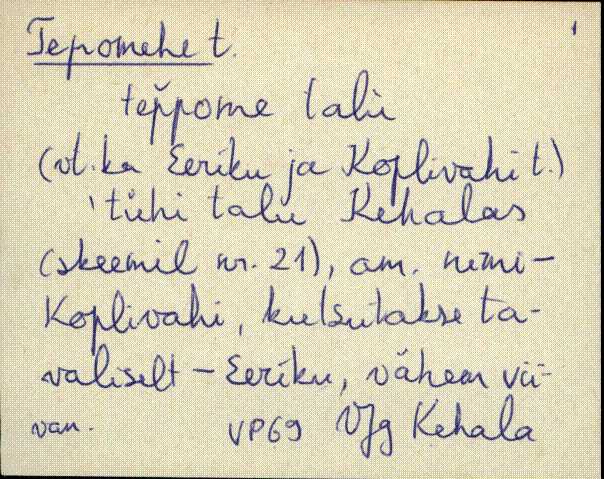 Tepomehe t.
teppome talu
(vt. ka Eeriku ja Koplivahi t.)
'tühi talu Kehalas
(skeemil nr. 21), am. nimi-
Koplivahi, kutsutakse ta-
valiselt - Eeriku, vähem
van. VP69 VJg Kehala